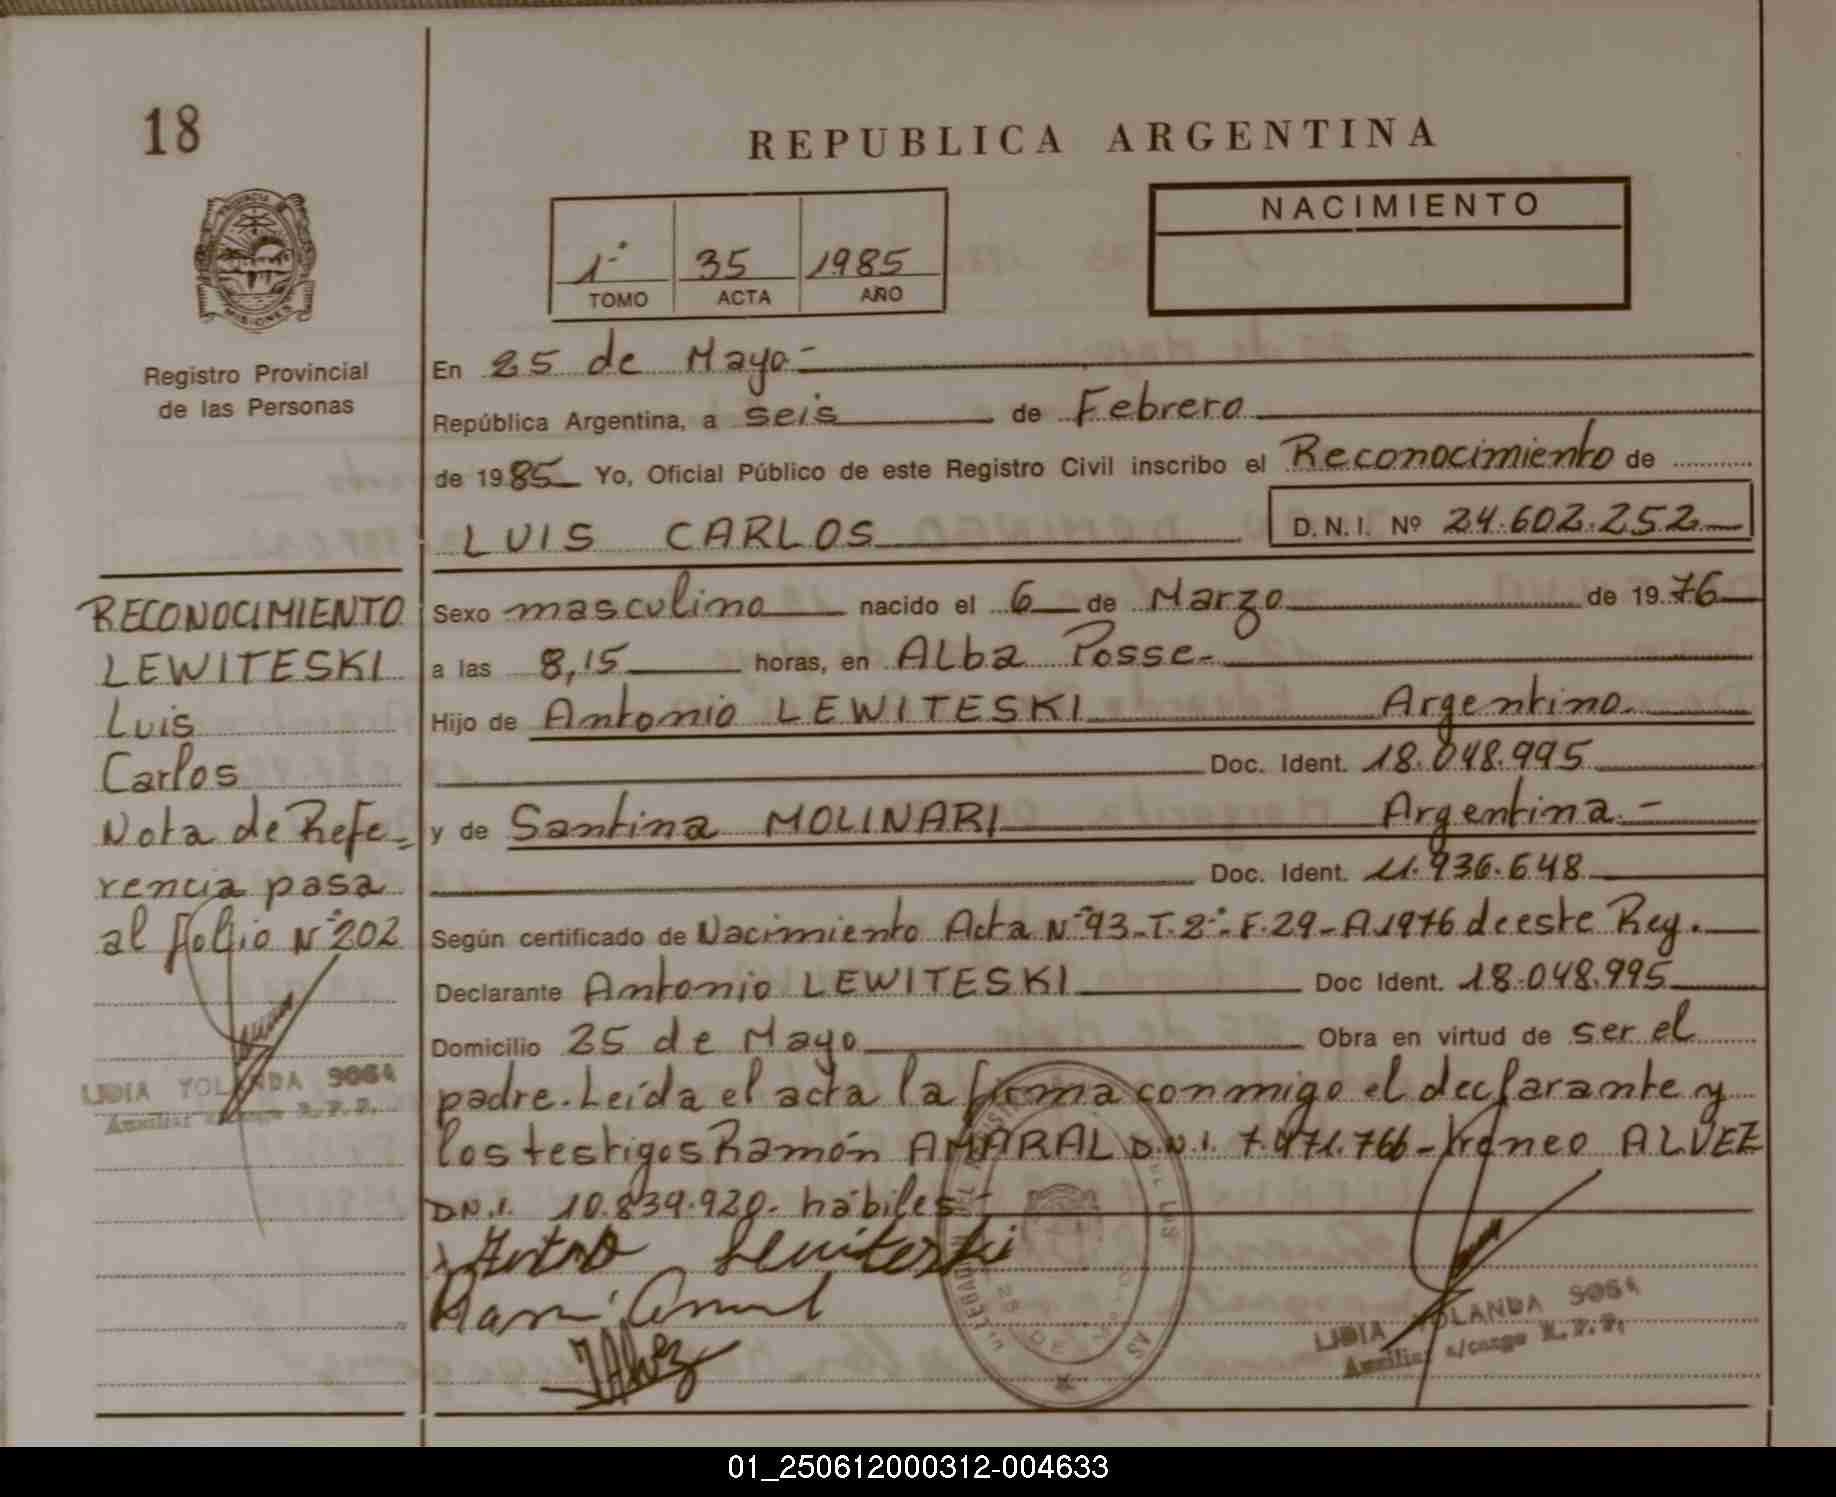 18
REPUBLICA ARGENTINA
PROVINCIA DE
MISIONES
1º 35 1985
TOMO ACTA AÑO
NACIMIENTO
Registro Provincial
de las Personas
En 25 de Mayo-
República Argentina, a seis de Febrero
de 1985 Yo, Oficial Público de este Registro Civil inscribo el Reconocimiento de
LUIS CARLOS D.N.I. Nº 24.602.252
RECONOCIMIENTO
LEWITESKI
Luis
Carlos
Nota de Refe=
rencia pasa
al folio Nº 202
LIDIA YOLANDA SOSA
Auxiliar a/cargo R.P.P.
Sexo masculino nacido el 6 de Marzo de 1976
a las 8,15 horas, en ALba Posse-
Hijo de Antonio LEWITESKI Argentino.
Doc. Ident. 18.048.995
y de Santina MOLINARI Argentina.-
Doc. Ident. 11.936.648
Según certificado de Nacimiento Acta Nº 93-T.2º-F.29-A.1976 de este Reg.
Declarante Antonio LEWITESKI Doc Ident. 18.048.995
Domicilio 25 de Mayo Obra en virtud de ser el
padre. Leída el acta la firma conmigo el declarante y
los testigos Ramón AMARAL D.N.I. 7.471.766- Ireneo ALVEZ
D.N.I. 10.839.920- hábiles.-
Lewiteski
IAlvez
LIDIA YOLANDA SOSA
Auxiliar a/cargo R.P.P.
01_250612000312-004633